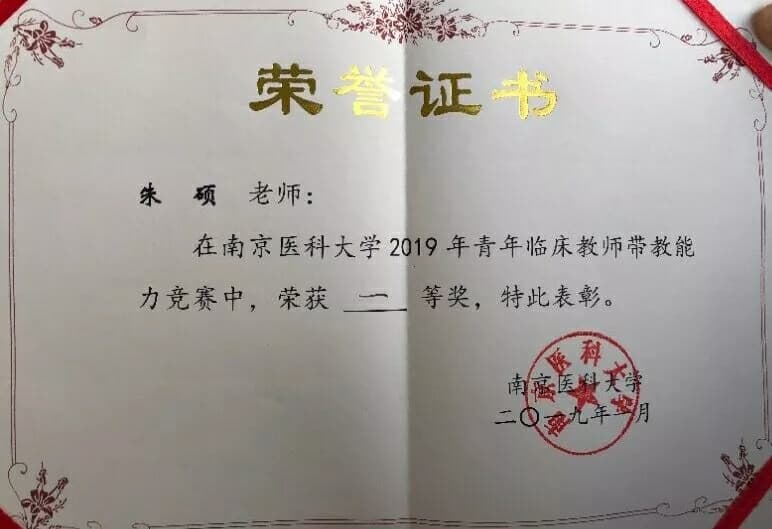 荣誉证书
朱 硕 老师：
在南京医科大学2019年青年临床教师带教能
力竞赛中，荣获 一 等奖，特此表彰。
南京医科大学
南京医科大学
二〇一九年一月